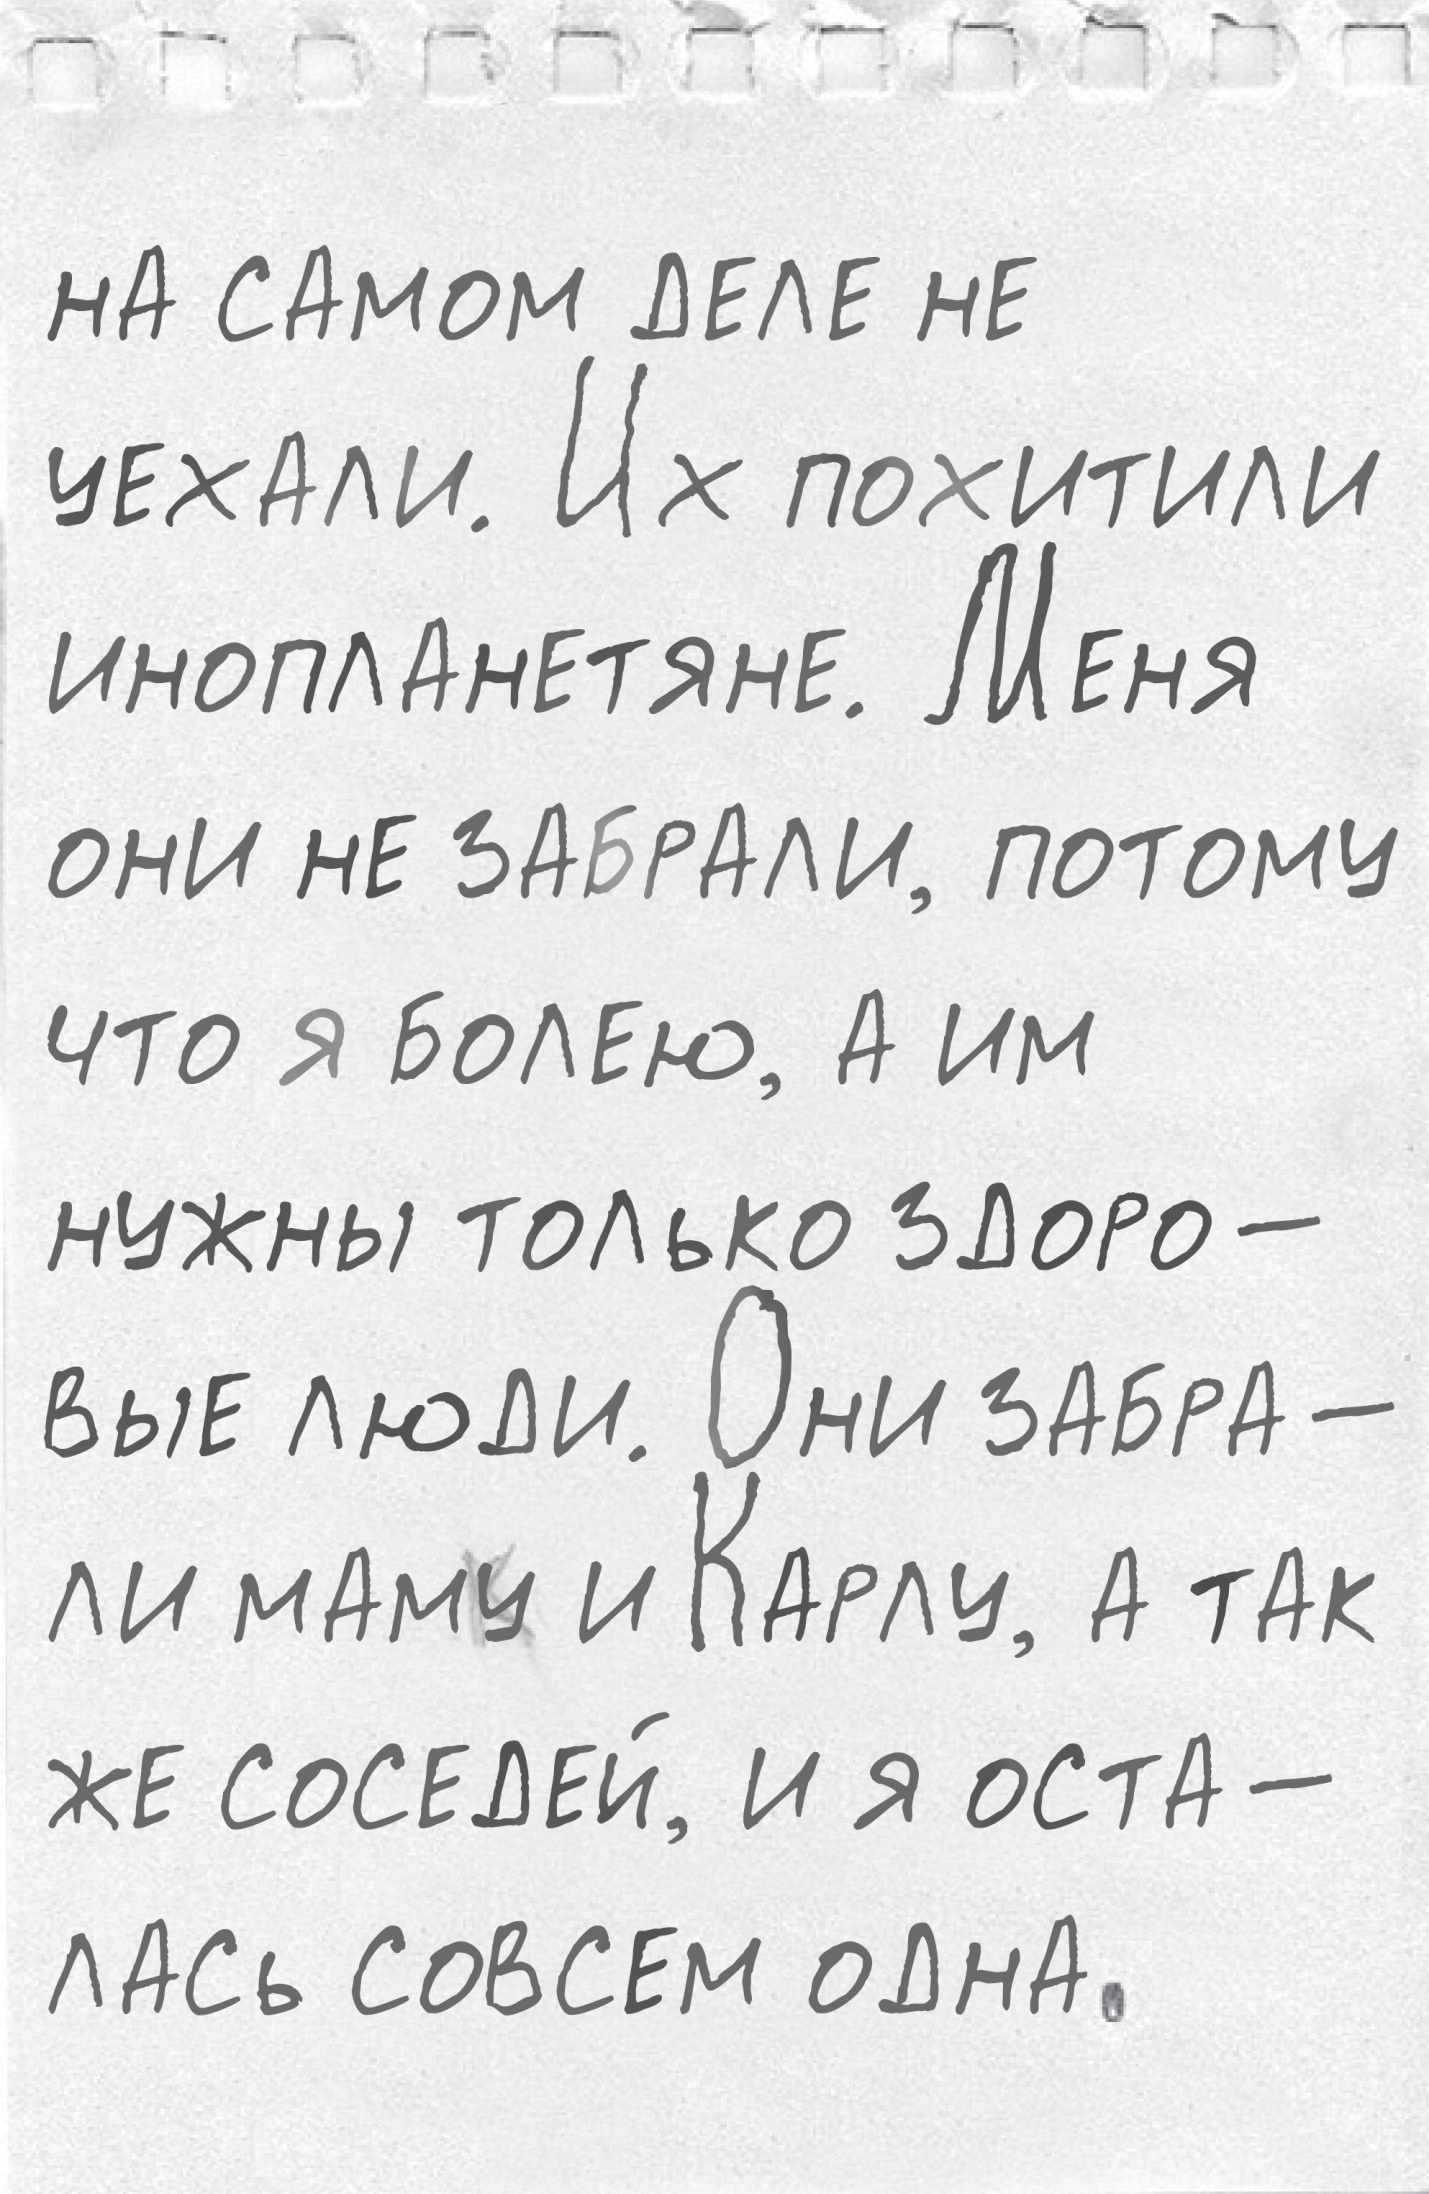 на самом деле не
уехали. Их похитили
инопланетяне. Меня
они не забрали, потому
что я болею, а им
нужны только здоро–
вые люди. Они забра–
ли маму и Карлу, а так
же соседей, и я оста–
лась совсем одна.